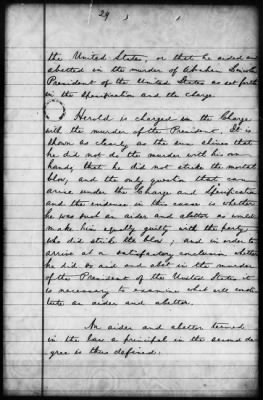 29
the United States, or that he aided and
abetted in the murder of Abraham Lincoln
President of the United States as set forth
in the Specification and the Charge
Herold is charged in the Charge
with the murder of the President. It is
shown as clearly as the sun shines that
he did not do the murder with his own
hands, that he did not strike the mortal
blow, and the only question that can
arise under the Charge and Specification
and the evidence in this cause is whether
he was such an aider and abettor as would
make him equally guilty with the party
who did strike the blow; and in order to
arrive at a satisfactory conclusion whether
he did so aid and abet in the murder
of the President of the United States it
is necessary to examine what will consti-
tute an aider and abettor.
An aider and abettor termed
in the law a principal in the second de-
gree is thus defined: